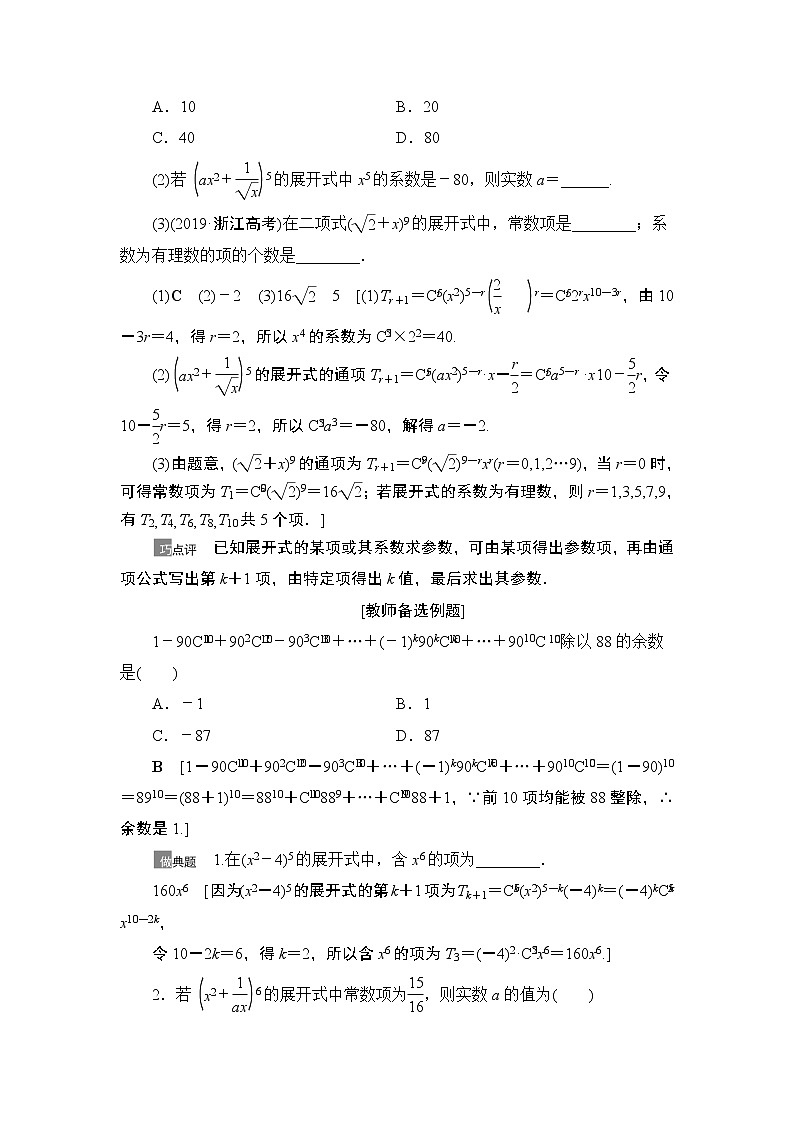 A．10  B．20
C．40  D．80
(2)若(ax²＋1/√x)⁵的展开式中x⁵的系数是－80，则实数a＝______.
(3)(2019·浙江高考)在二项式(√2＋x)⁹的展开式中，常数项是________；系
数为有理数的项的个数是________．
(1)C　(2)－2　(3)16√2　5　[(1)Tᵣ₊₁＝C₅ʳ(x²)⁵⁻ʳ(2/x)ʳ＝C₅ʳ2ʳx¹⁰⁻³ʳ，由10
－3r＝4，得r＝2，所以x⁴的系数为C₅²×2²＝40.
(2)(ax²＋1/√x)⁵的展开式的通项Tᵣ₊₁＝C₅ʳ(ax²)⁵⁻ʳ·x－r/2＝C₅ʳa⁵⁻ʳ·x10－5/2r，令
10－5/2r＝5，得r＝2，所以C₅²a³＝－80，解得a＝－2.
(3)由题意，(√2＋x)⁹的通项为Tᵣ₊₁＝C₉ʳ(√2)⁹⁻ʳxʳ(r＝0,1,2…9)，当r＝0时，
可得常数项为T₁＝C₉⁰(√2)⁹＝16√2；若展开式的系数为有理数，则r＝1,3,5,7,9，
有T₂,T₄,T₆,T₈,T₁₀共5个项．]
巧点评　已知展开式的某项或其系数求参数，可由某项得出参数项，再由通
项公式写出第k＋1项，由特定项得出k值，最后求出其参数．
[教师备选例题]
1－90C₁₀¹＋90²C₁₀²－90³C₁₀³＋…＋(－1)ᵏ90ᵏC₁₀ᵏ＋…＋90¹⁰C₁₀¹⁰除以88的余数
是(　　)
A．－1  B．1
C．－87  D．87
B　[1－90C₁₀¹＋90²C₁₀²－90³C₁₀³＋…＋(－1)ᵏ90ᵏC₁₀ᵏ＋…＋90¹⁰C₁₀¹⁰＝(1－90)¹⁰
＝89¹⁰＝(88＋1)¹⁰＝88¹⁰＋C₁₀¹88⁹＋…＋C₁₀⁹88＋1，∵前10项均能被88整除，∴
余数是1.]
做典题　1.在(x²－4)⁵的展开式中，含x⁶的项为________．
160x⁶　[因为(x²－4)⁵的展开式的第k＋1项为Tₖ₊₁＝C₅ᵏ(x²)⁵⁻ᵏ(－4)ᵏ＝(－4)ᵏC₅ᵏ
x¹⁰⁻²ᵏ，
令10－2k＝6，得k＝2，所以含x⁶的项为T₃＝(－4)²·C₅²x⁶＝160x⁶.]
2．若(x²＋1/ax)⁶的展开式中常数项为15/16，则实数a的值为(　　)